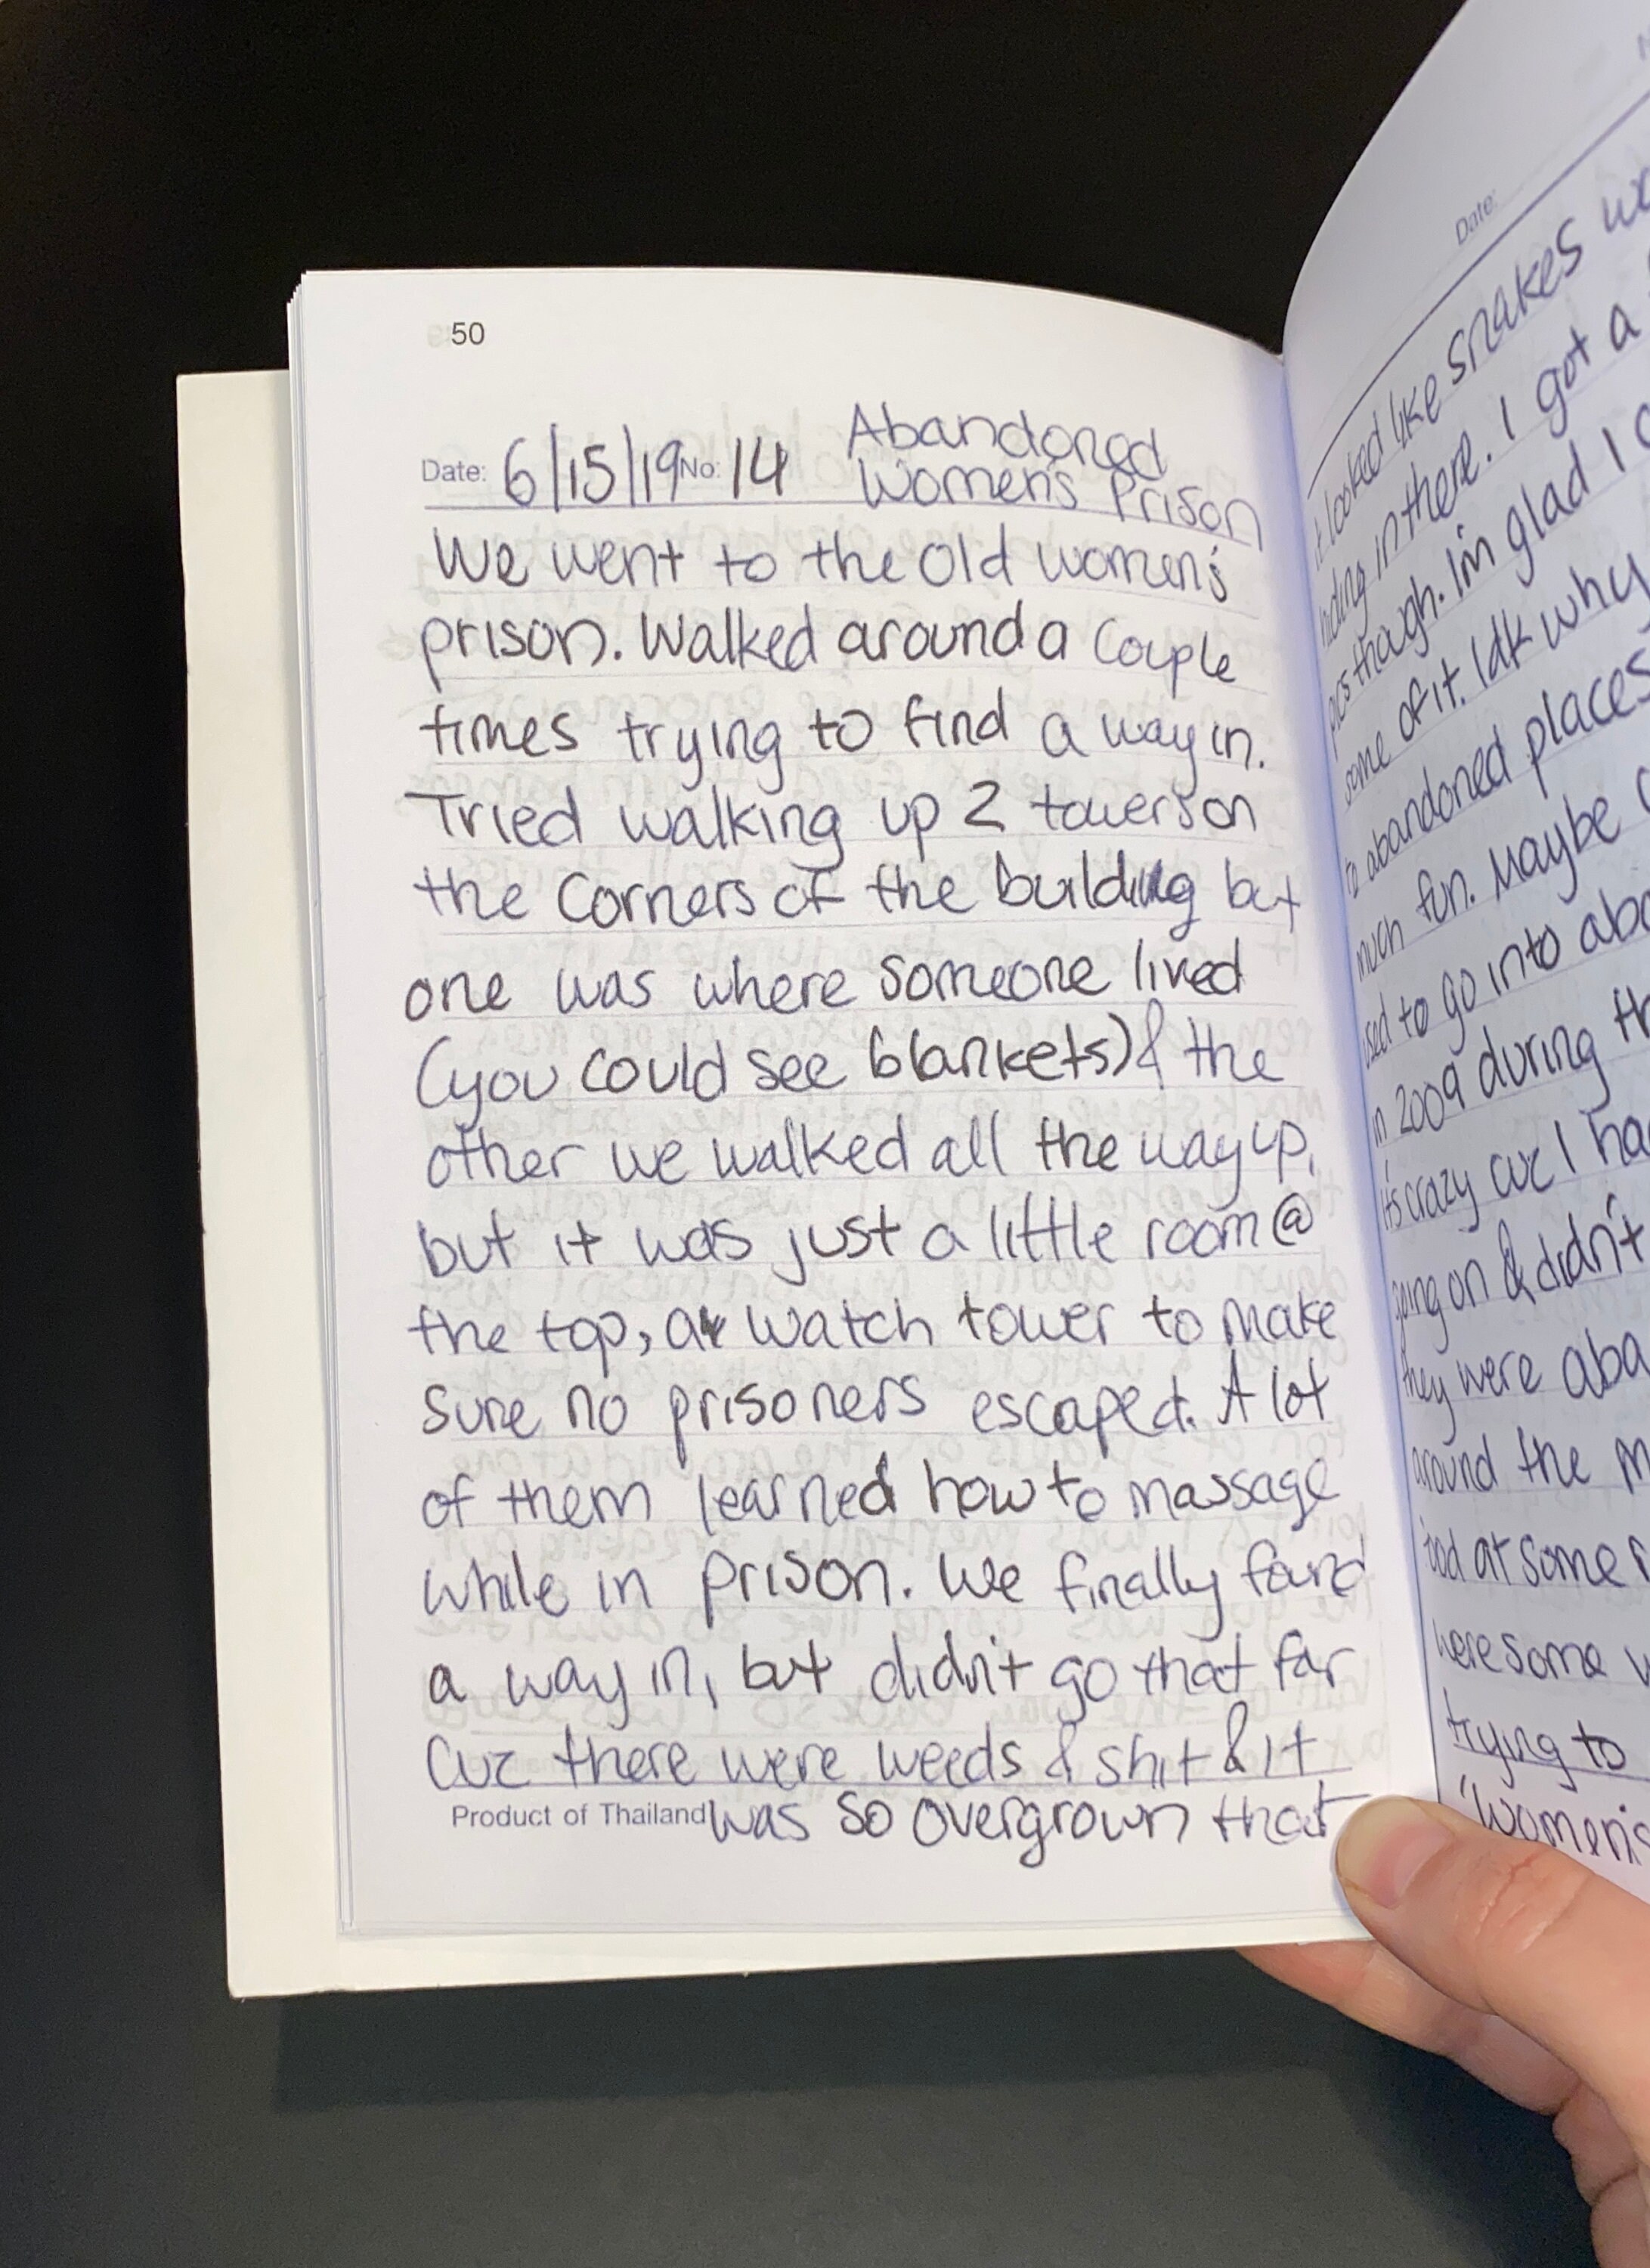 50
Date: 6/15/19 No: 14 Abandoned
Women's Prison
We went to the old women's
prison. Walked around a couple
times trying to find a way in.
Tried walking up 2 towers on
the corners of the building but
one was where someone lived
(you could see blankets) & the
other we walked all the way up,
but it was just a little room @
the top, a watch tower to make
sure no prisoners escaped. A lot
of them learned how to massage
while in prison. We finally found
a way in, but didn't go that far
cuz there were weeds & shit & it
Product of Thailand was so overgrown that
Date:
it looked like snakes
hiding in there. I got a
though. I'm glad I
some of it. Idk why
to abandoned places
much fun. Maybe
used to go into
in 2009 during
it's crazy cuz I
going on & didn't
they were
around the
at some
were some
trying to
"Women's